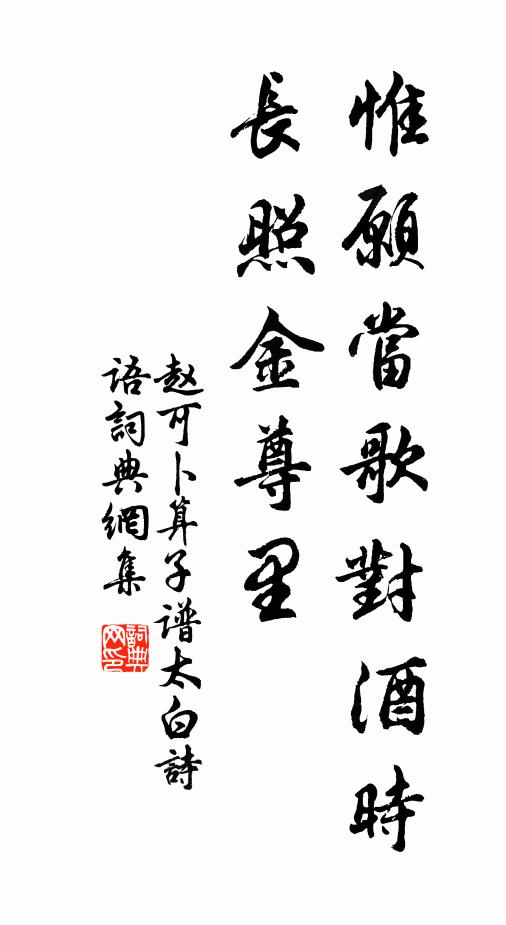 惟願當歌對酒時
長照金尊里
赵可卜算子谱太白詩
语詞典網集
詞典网印